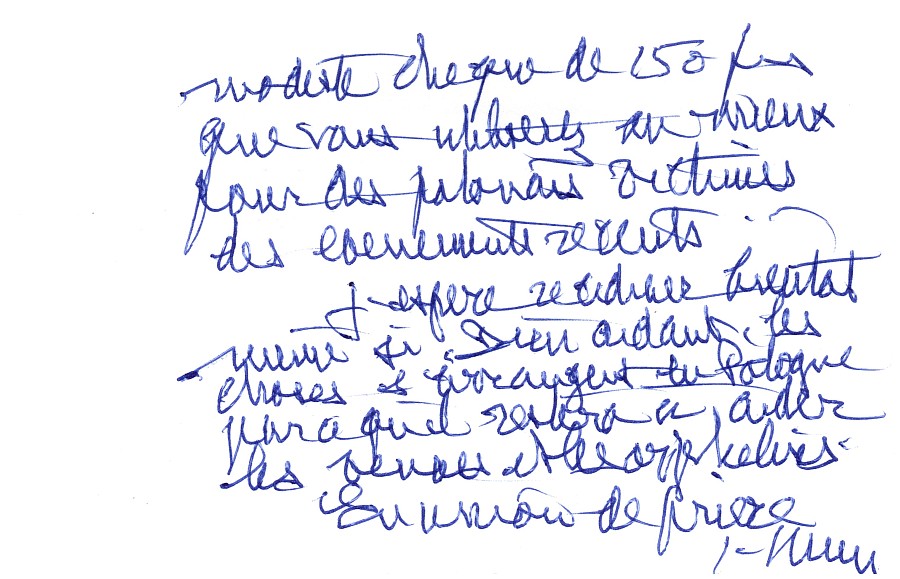 modeste cheque de 150 frs
que vous utiliserez au mieux
pour des polonais victimes
des evenements recents
J'espere recidiver bientot
meme si Dieu aidant, les
choses s'arrangent en Pologne
parce qu'il restera a aider
les veuves et les orphelins.
En union de priere